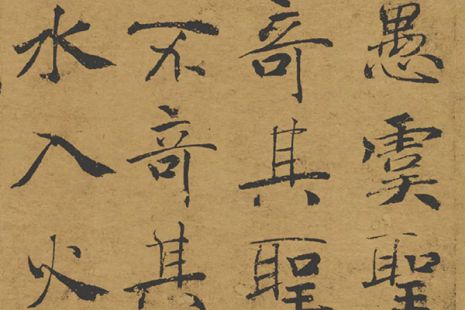 愚虞聖
奇其聖
不奇其
水入火